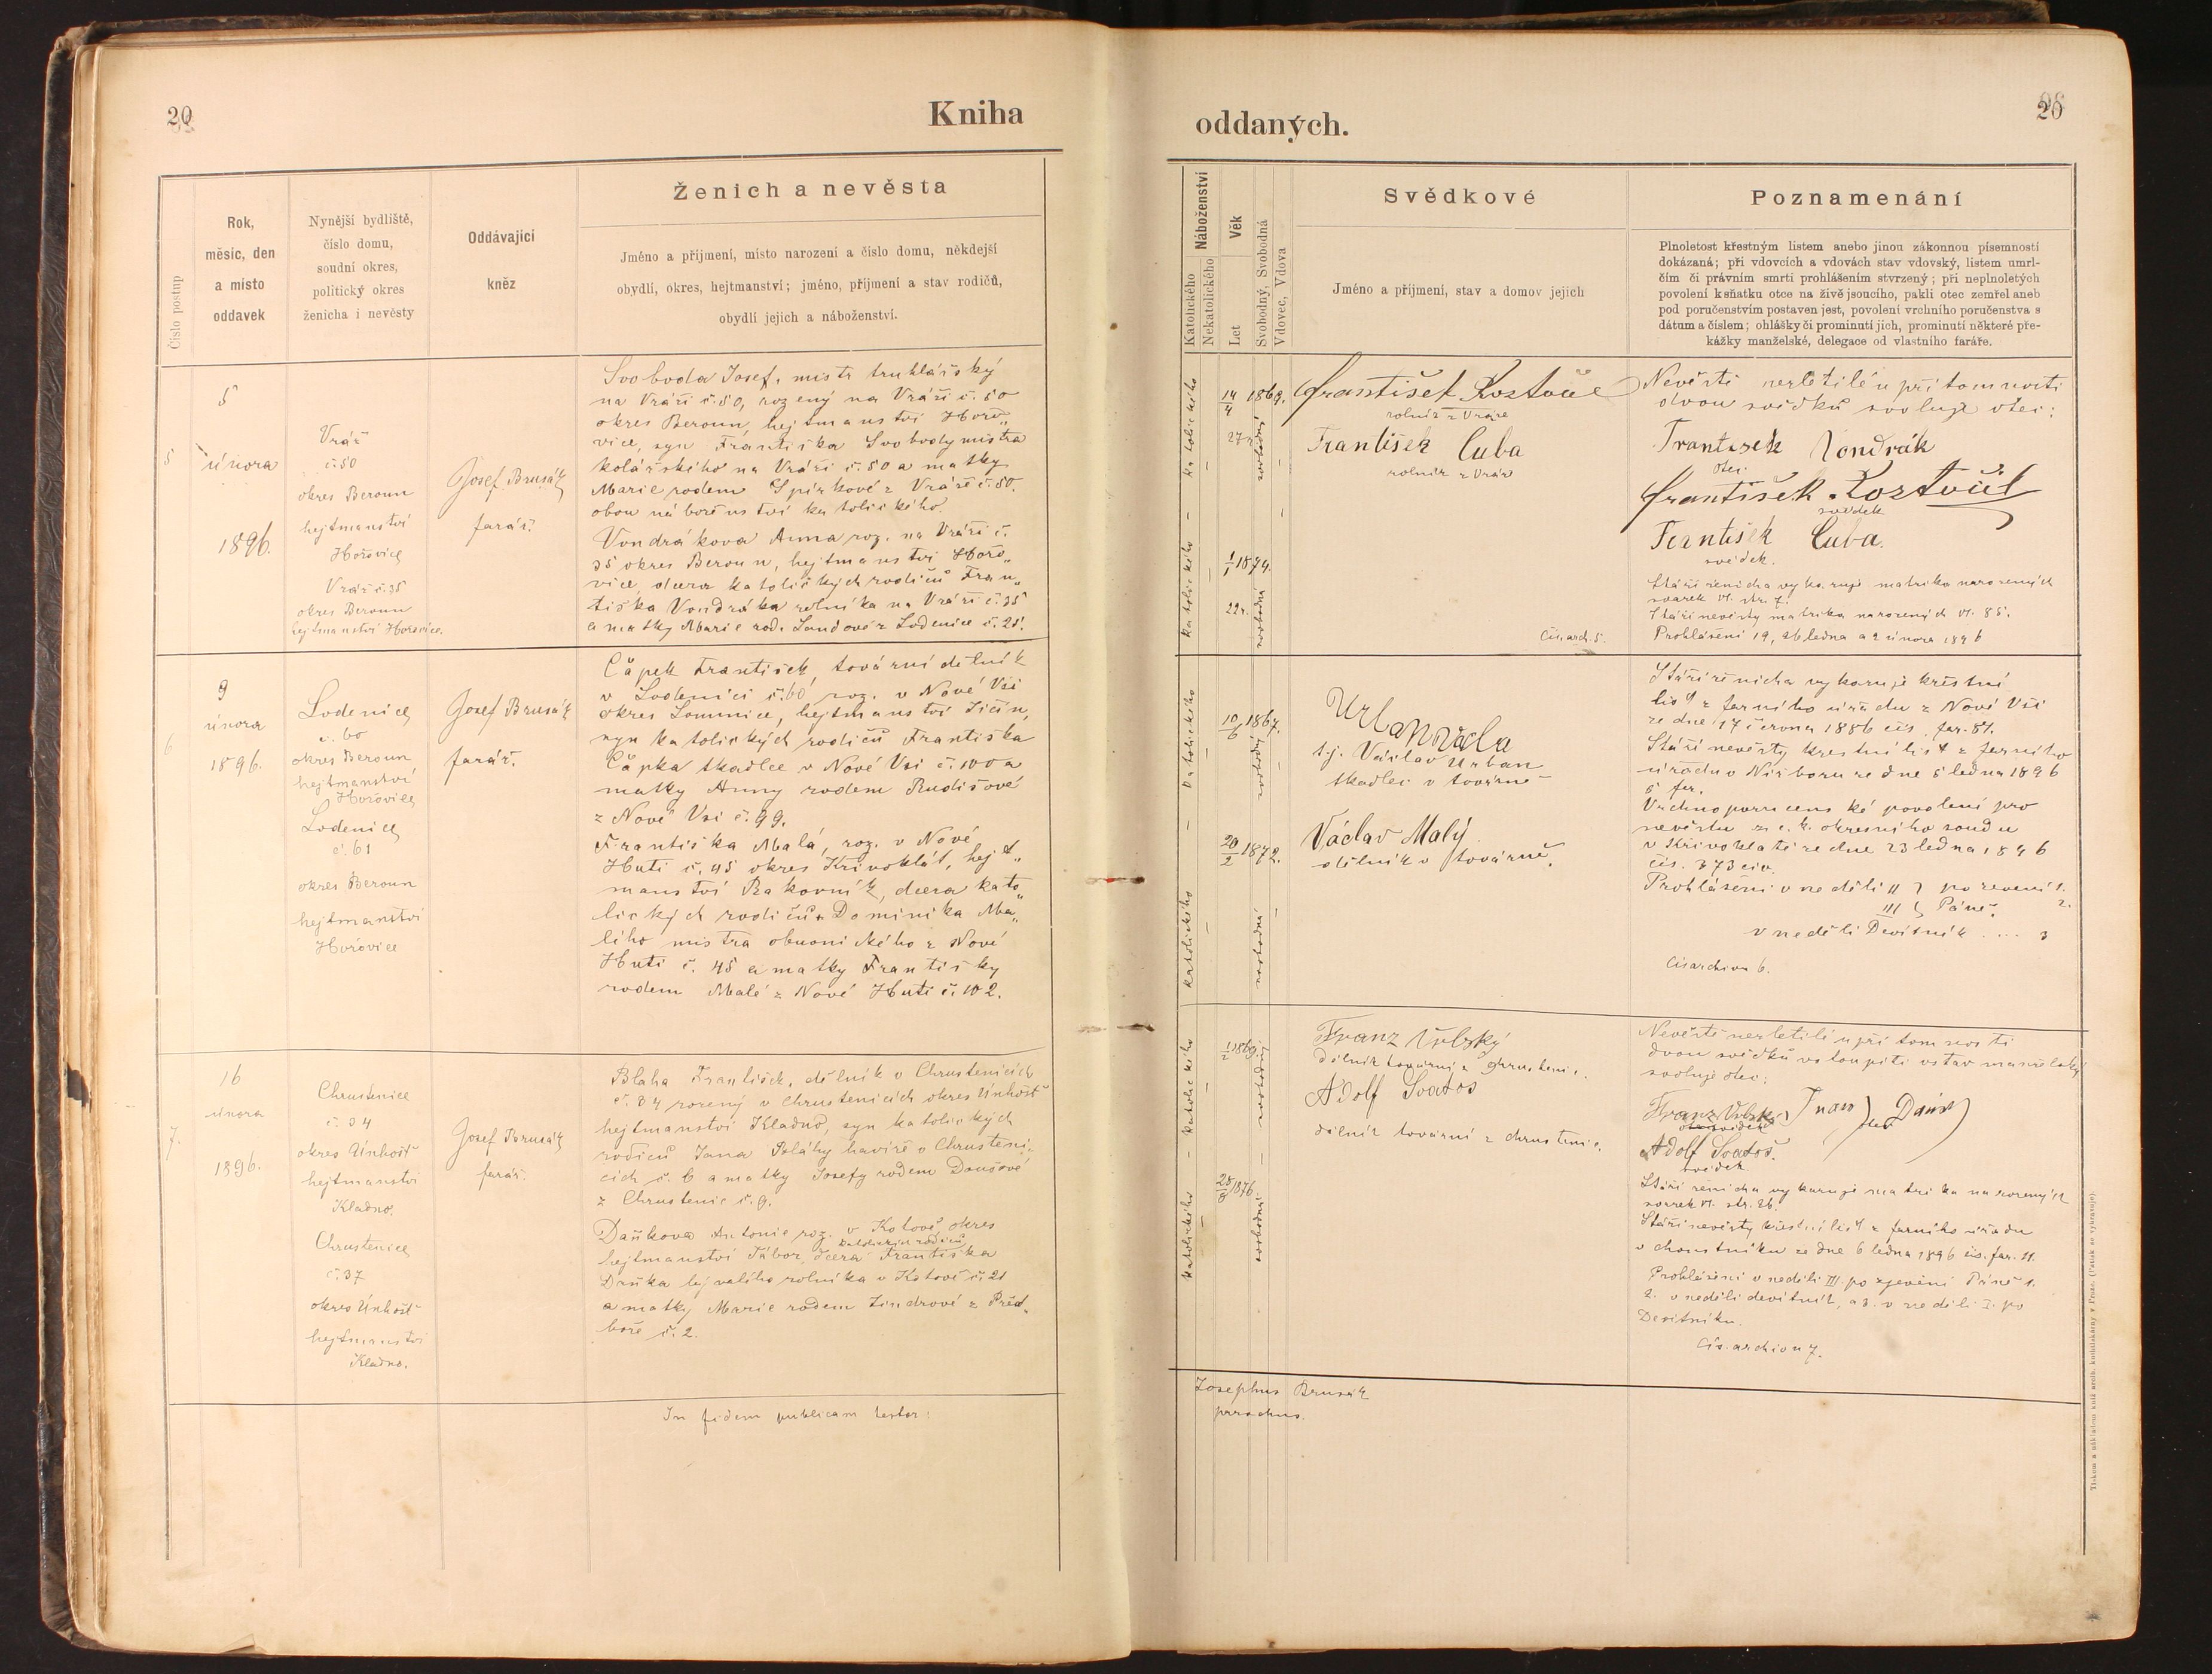 20
Kniha
Číslo postup
Rok,
měsíc, den
a místo
oddavek
Nynější bydliště,
číslo domu,
soudní okres,
politický okres
ženicha i nevěsty
Oddávající
kněz
Ženich a nevěsta
Jméno a příjmení, místo narození a číslo domu, někdejší
obydlí, okres, hejtmanství; jméno, příjmení a stav rodičů,
obydlí jejich a náboženství.
5
5
února
1896.
Vráž
č. 50
okres Beroun
hejtmanství
Hořovice
Vráž č. 35
okres Beroun
hejtmanství Hořovice.
Josef Brusák
farář.
Svoboda Josef, mistr truhlářský
na Vráži č. 50, rozený na Vráži č. 50
okres Beroun, hejtmanství Hořo„
vice, syn Františka Svobody mistra
kolářského na Vráži č. 50 a matky
Marie rodem Špírkové z Vráže č. 50.
obou náboženství katolického.
Vondrákova Anna roz. na Vráži č.
35 okres Beroun, hejtmanství Hořo„
vice, dcera katolických rodičů Fran„
tiška Vondráka rolníka na Vráži č. 35
a matky Marie rod. Landové z Loděnice č. 21.
6
9
února
1896.
Lodenice
č. 60
okres Beroun
hejtmanství
Hořovice
Lodenice
č. 61
okres Beroun
hejtmanství
Hořovice
Josef Brusák
farář.
Čápek František, tovární dělník
v Lodenici č. 60, roz. v Nové Vsi
okres Lomnice, hejtmanství Jičín,
syn katolických rodičů Františka
Čápka tkadlce v Nové Vsi č. 100 a
matky Anny rodem Rudišové
z Nové Vsi č. 99.
Františka Malá, roz. v Nové
Huti č. 45 okres Křivoklát, hejt„
manství Rakovník, dcera kato„
lických rodičů Dominika Ma„
lého mistra obuvnického z Nové
Huti č. 45 a matky Františky
rodem Malé z Nové Huti č. 102.
7.
16
února
1896.
Chrustenice
č. 34
okres Únhošť
hejtmanství
Kladno.
Chrustenice
č. 37
okres Únhošť
hejtmanství
Kladno.
Josef Brusák
farář.
Blaha František, dělník v Chrustenicích
č. 34 rozený v Chrustenicích okres Únhošť
hejtmanství Kladno, syn katolických
rodičů Jana Bláhy havíře v Chrusteni„
cích č. 6 a matky Josefy rodem Doušové
z Chrustenic č. 9.
Daňkova Antonie roz. v Kotově okres
katolických rodičů
hejtmanství Tábor, dcera Františka
Daňka bývalého rolníka v Kotově č. 21
a matky Marie rodem Jindrové z Před„
boře č. 2.
In fidem publicam testor:
oddaných.
20
Náboženství
Katolického
Nekatolického
Věk
Let
Svobodný, Svobodná
Vdovec, Vdova
Svědkové
Jméno a příjmení, stav a domov jejich
Poznamenání
Plnoletost křestným listem anebo jinou zákonnou písemností
dokázaná; při vdovcích a vdovách stav vdovský, listem umrl-
čím či právním smrti prohlášením stvrzený; při neplnoletých
povolení k sňatku otce na živě jsoucího, pakli otec zemřel aneb
pod poručenstvím postaven jest, povolení vrchního poručenstva s
dátum a číslem; ohlášky či prominutí jich, prominutí některé pře-
kážky manželské, delegace od vlastního faráře.
Katolického – Katolického
14/4 1869.
27 r.
svobodný
1/1 1874.
22 r.
svobodná
František Kostočil
rolník z Vráže
František Cuba
rolník z Vráže
Čís. arch. 5.
Nevěstě nezletilé u přítomnosti
dvou svědků svoluje otec:
František Vondrák
otec
František Kostočil
svědek
František Cuba.
svědek.
Stáří ženicha vykazuje matrika narozených
svazek VI. str. 7.
Stáří nevěsty matrika narozených VI. 85.
Prohlášení 19, 26 ledna a 2 února 1896
Katolického – Katolického
10/6 1867.
svobodný
20/2 1872.
svobodná
t. j. Václav Urban
tkadlec v továrně
Václav Malý
dělník v továrně.
Stáří ženicha vykazuje křestní
list z farního úřadu z Nové Vsi
ze dne 17 června 1886 čís. far. 81.
Stáří nevěsty křestní list z farního
úřadu v Nižboru ze dne 5 ledna 1896
5 far.
Vrchnoporučenské povolení pro
nevěstu z c. k. okresního soudu
v Křivoklátě ze dne 23 ledna 1896
čís. 373 civ.
Prohlášení v neděli II } po zjevení 1.
III } Páně. 2.
v neděli Devítník .... 3
Čís archivu 6.
Katolického – Katolického
1/2 1869.
svobodný
28/8 1876.
svobodná
Franz Vrbský
dělník tovární z Chrustenic.
Adolf Svatos
dělník tovární z Chrustenic.
Nevěstě nezletilé u přítomnosti
dvou svědků vstoupiti v stav manželský
svoluje otec:
Franz Vrbský
svědek
otec
Adolf Svatoš.
svědek
Stáří ženicha vykazuje matrika narozených
svazek VI. str. 26.
Stáří nevěsty křestní list z farního úřadu
v Choustníku ze dne 6 ledna 1896 čís. far. 11.
Prohlášení v neděli III. po zjevení Páně 1.
2. v neděli devítník, a 3. v neděli I. po
Devítníku.
Čís. archivu 7.
Josephus Brusák
parochus.